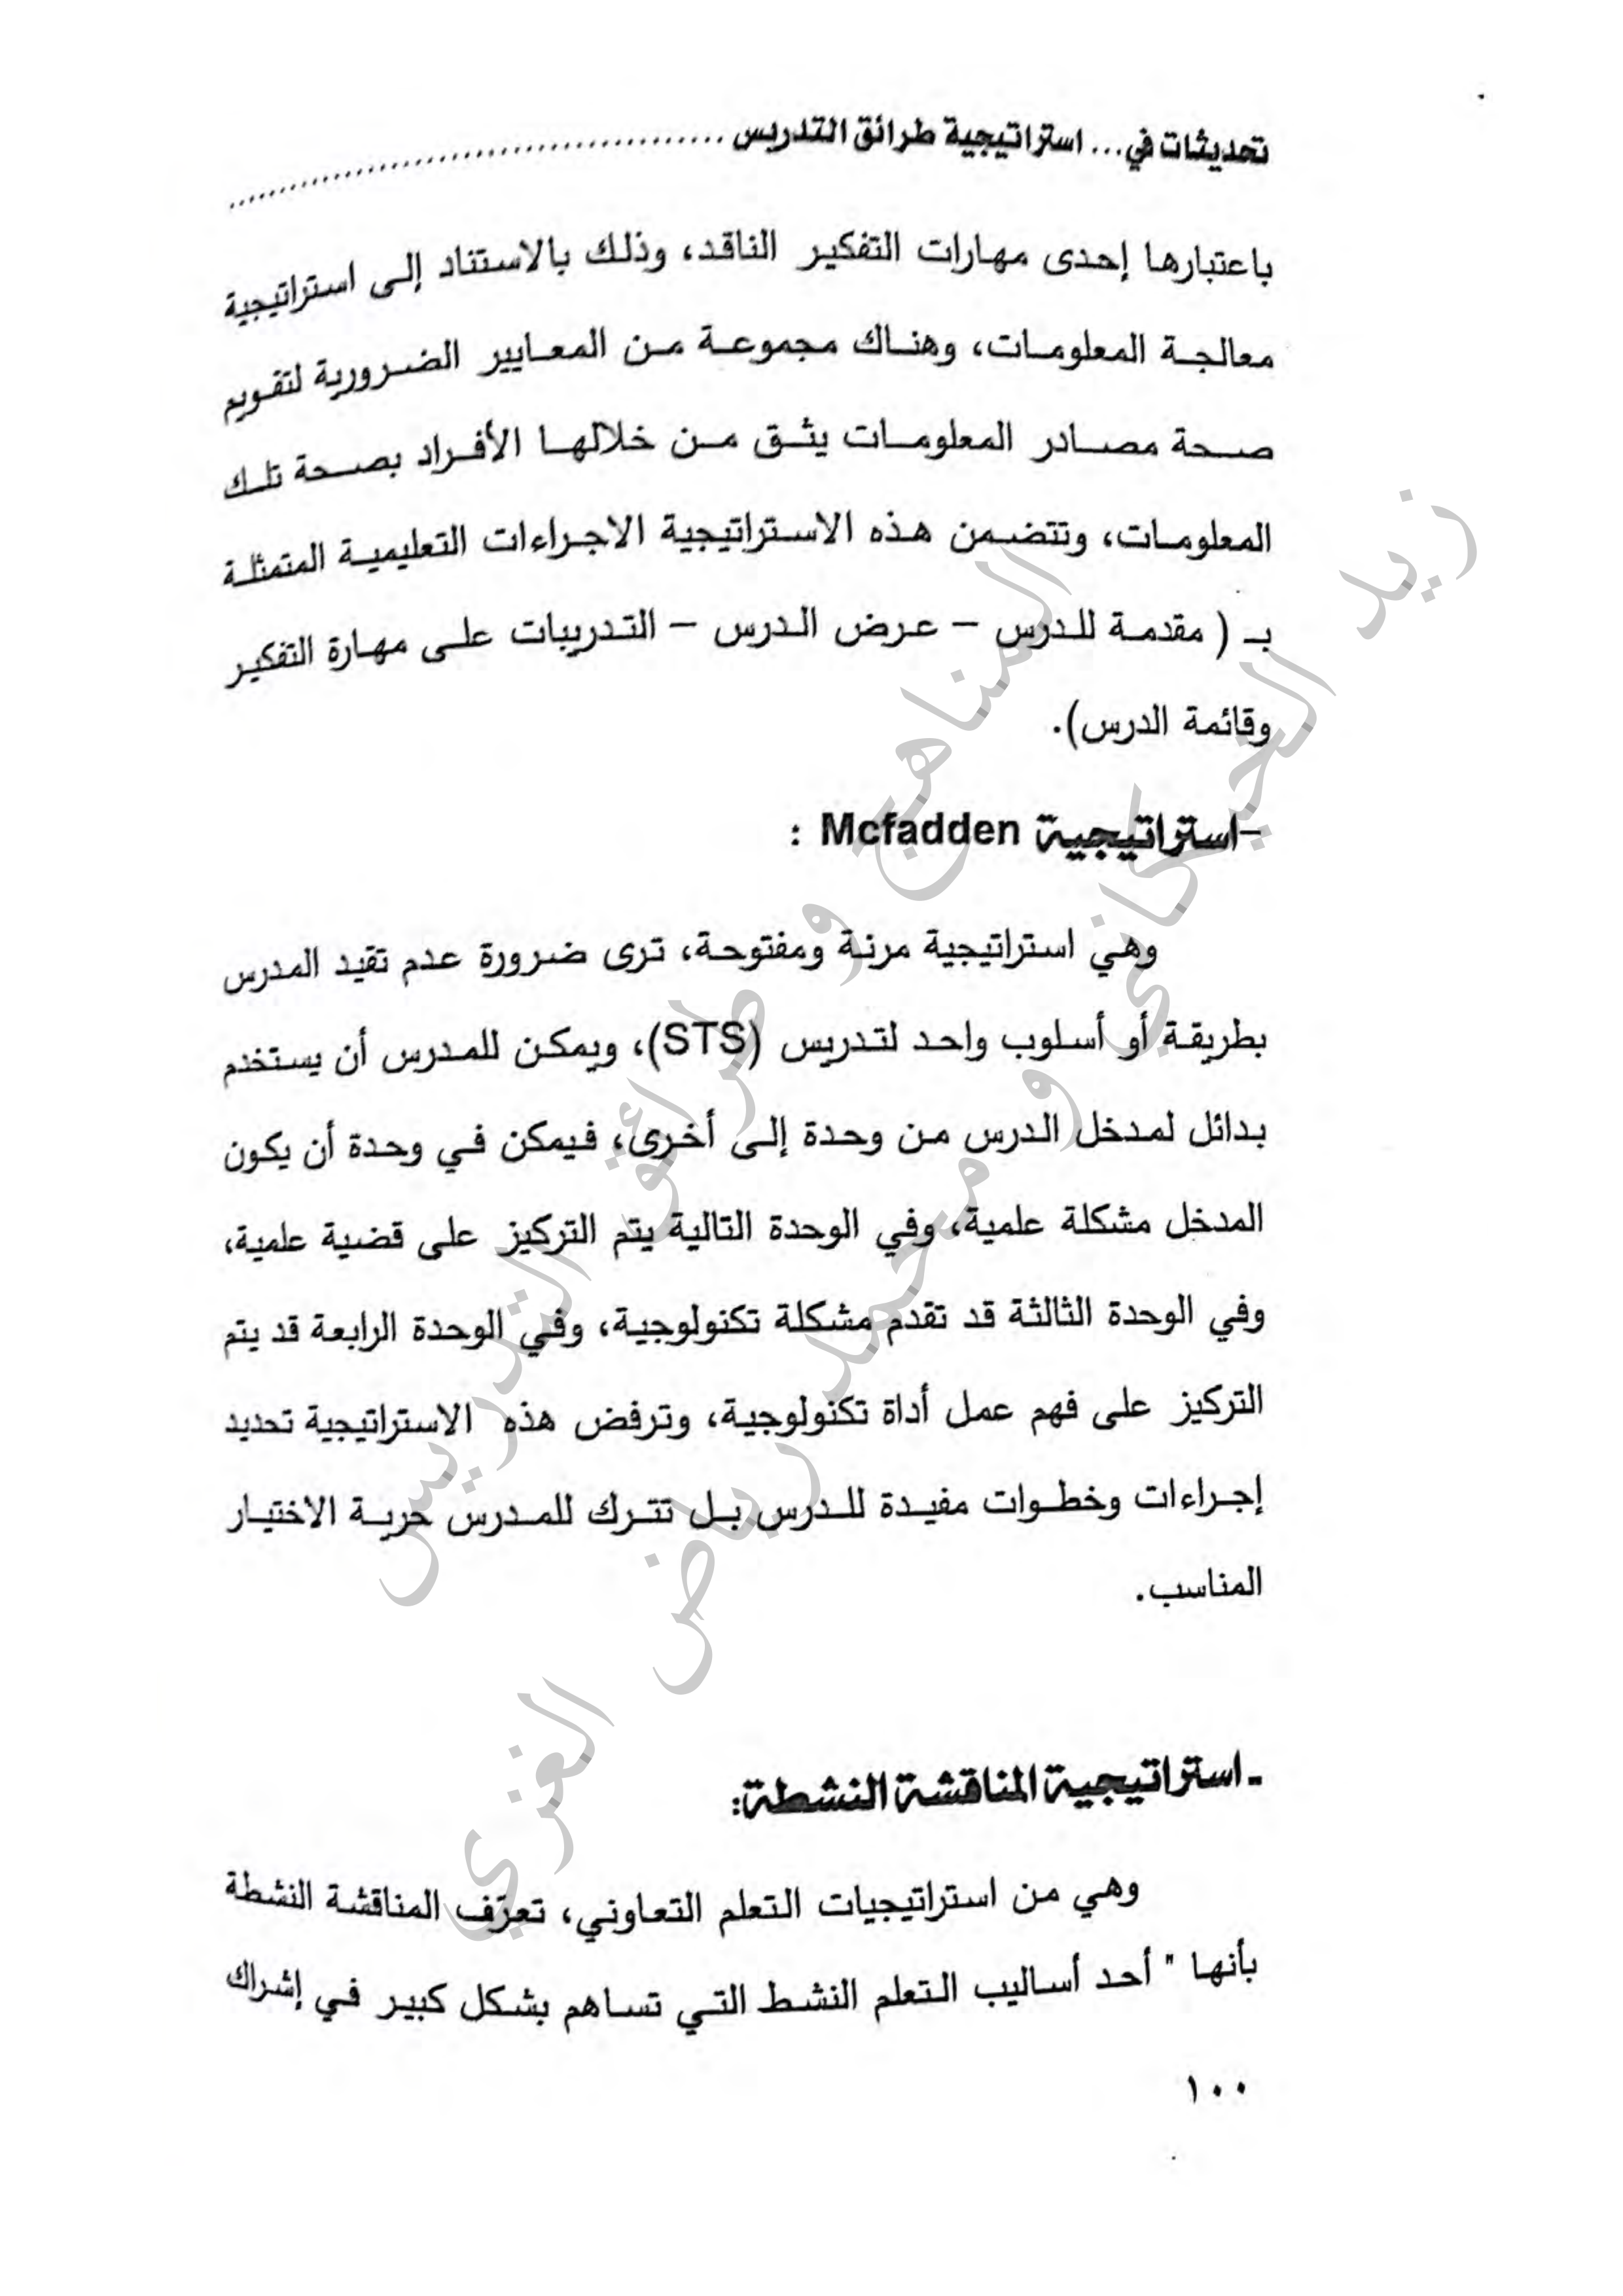 تحديثات في... استراتيجية طرائق التدريس ........................................
باعتبارها إحدى مهارات التفكير الناقد، وذلك بالاستناد إلى استراتيجية
معالجة المعلومات، وهناك مجموعة من المعايير الضرورية لتقويم
صحة مصادر المعلومات يثق من خلالها الأفراد بصحة تلك
المعلومات، وتتضمن هذه الاستراتيجية الاجراءات التعليمية المتمثلة
بـ ( مقدمة للدرس – عرض الدرس – التدريبات على مهارة التفكير
وقائمة الدرس).
-استراتيجية Mcfadden :
وهي استراتيجية مرنة ومفتوحة، ترى ضرورة عدم تقيد المدرس
بطريقة أو أسلوب واحد لتدريس (STS)، ويمكن للمدرس أن يستخدم
بدائل لمدخل الدرس من وحدة إلى أخرى، فيمكن في وحدة أن يكون
المدخل مشكلة علمية، وفي الوحدة التالية يتم التركيز على قضية علمية،
وفي الوحدة الثالثة قد تقدم مشكلة تكنولوجية، وفي الوحدة الرابعة قد يتم
التركيز على فهم عمل أداة تكنولوجية، وترفض هذه الاستراتيجية تحديد
إجراءات وخطوات مفيدة للدرس بل تترك للمدرس حرية الاختيار
المناسب.
- استراتيجية المناقشة النشطة:
وهي من استراتيجيات التعلم التعاوني، تعرّف المناقشة النشطة
بأنها " أحد أساليب التعلم النشط التي تساهم بشكل كبير في إشراك
١٠٠
المناهج و طرائق التدريس
زيد الخيكاني و محمد رياض الغزي